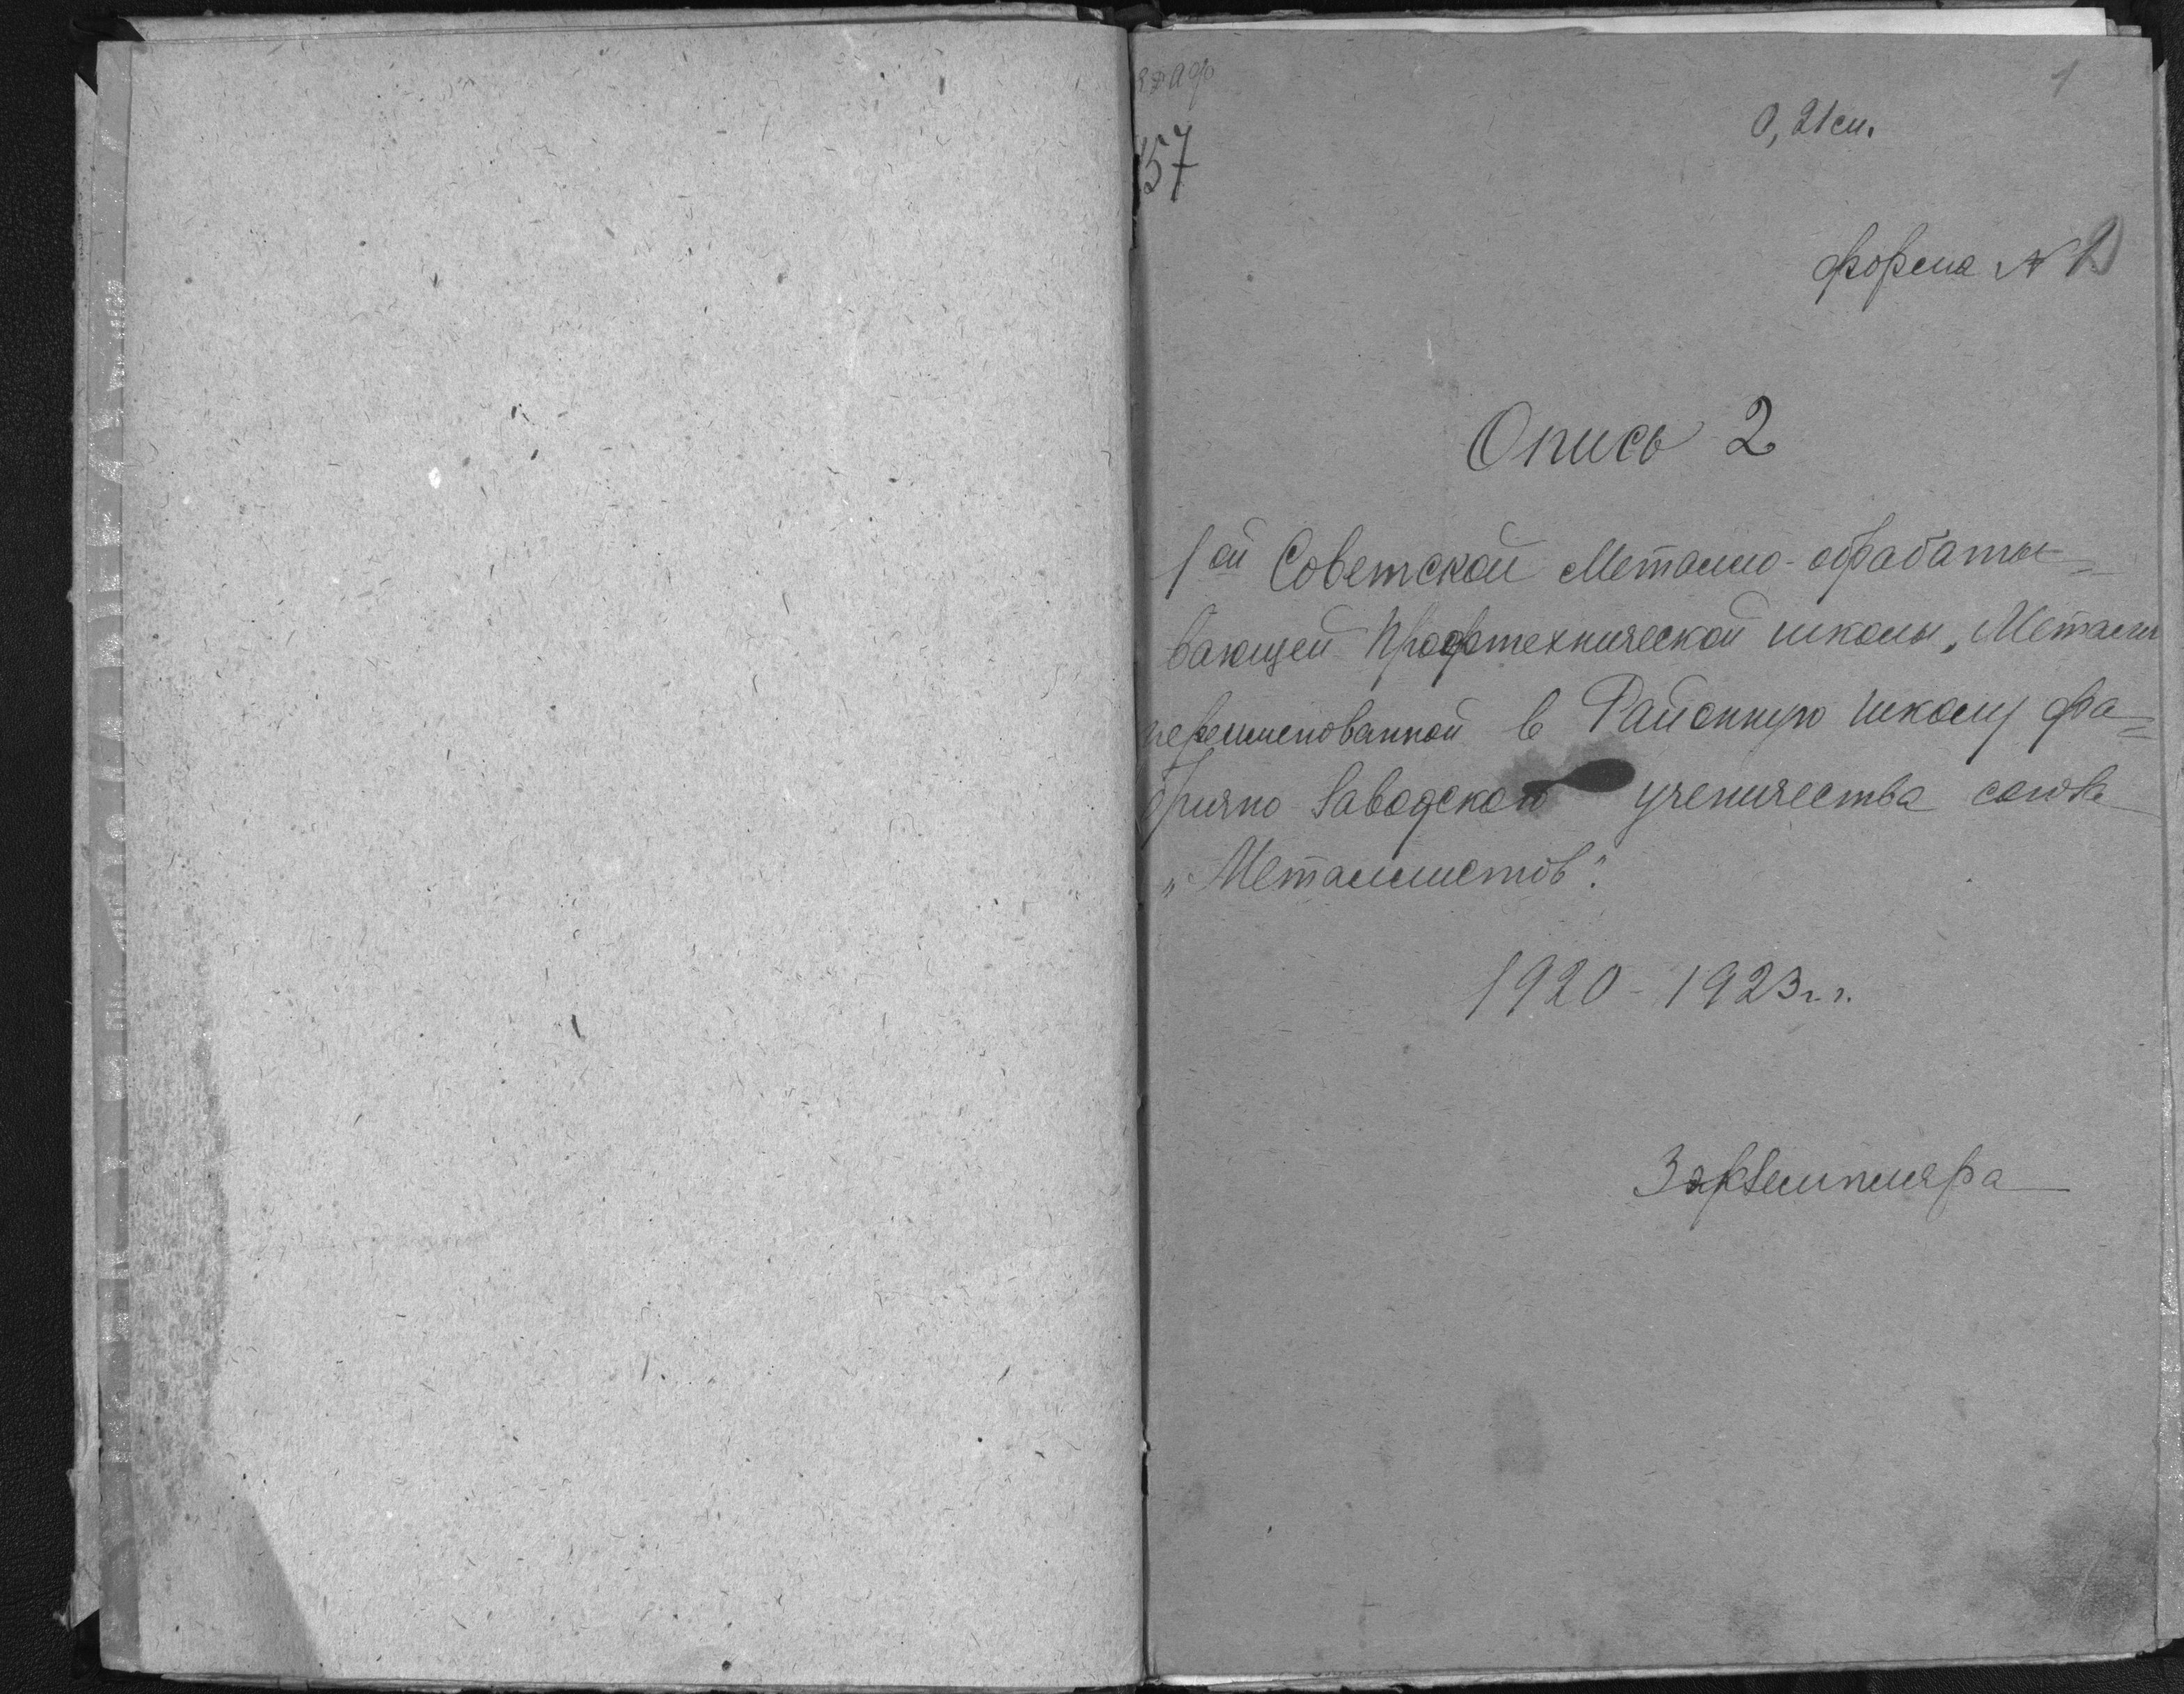 1
0,21 см.
157
форма № 1
Опись 2
1ой Советской Металло-обрабаты-
вающей профтехнической школы „Металл
переименованной в Районную школу фа-
брично заводского ученичества союза
„Металлистов".
1920-1923 г.г.
3 экземпляра